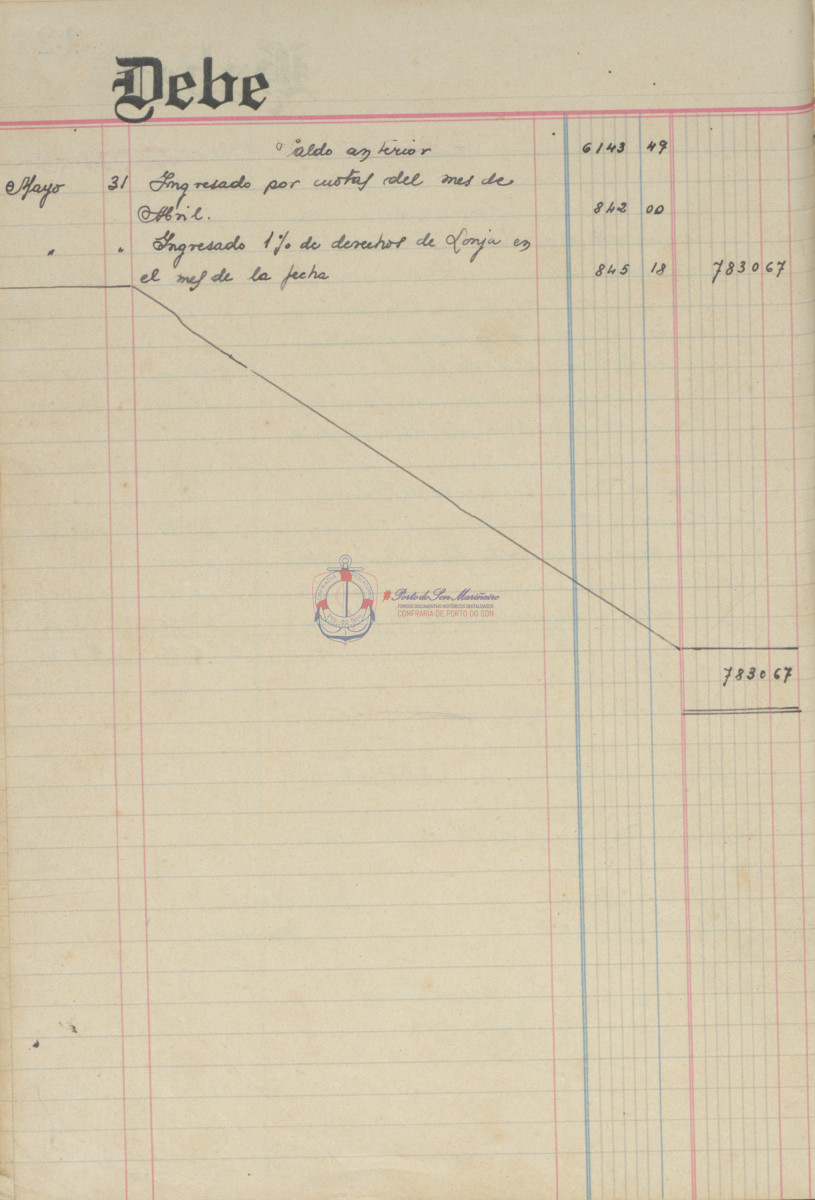 Debe
Saldo anterior 6143 49
Mayo 31 Ingresado por cuotas del mes de
Abril. 842 00
" " Ingresado 1% de derechos de Lonja en
el mes de la fecha 845 18 7830 67
Porto do Son Mariñeiro
FONDOS DOCUMENTAIS HISTÓRICOS DIXITALIZADOS
CONFRARÍA DE PORTO DO SON
7830 67